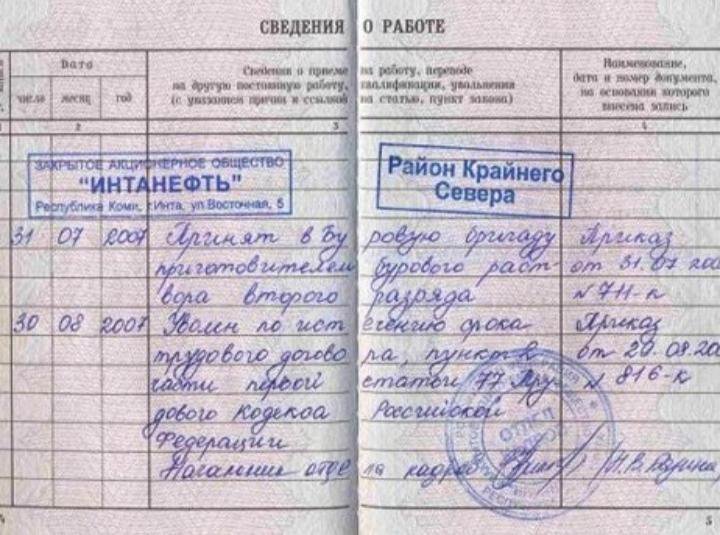 СВЕДЕНИЯ О РАБОТЕ
Дата
число месяц год
Сведения о приеме на работу, переводе
на другую постоянную работу, квалификации, увольнении
(с указанием причин и ссылкой на статью, пункт закона)
Наименование,
дата и номер документа,
на основании которого
внесена запись
2 3 4
ЗАКРЫТОЕ АКЦИОНЕРНОЕ ОБЩЕСТВО
"ИНТАНЕФТЬ"
Республика Коми, г.Инта, ул.Восточная, 5
Район Крайнего
Севера
31 07 2007 Принят в бу ровую бригаду Приказ
приготовителем бурового раст- от 31.07 200
вора второго разряда №711-к
30 08 2007 Уволен по ист ечению срока Приказ
трудового догово ра, пункт 2 от 29.08.20
части первой статьи 77 Тру- № 816-к
дового Кодекса Российской
Федерации
Начальник отде ла кадров
ОТДЕЛ
КАДРОВ
5